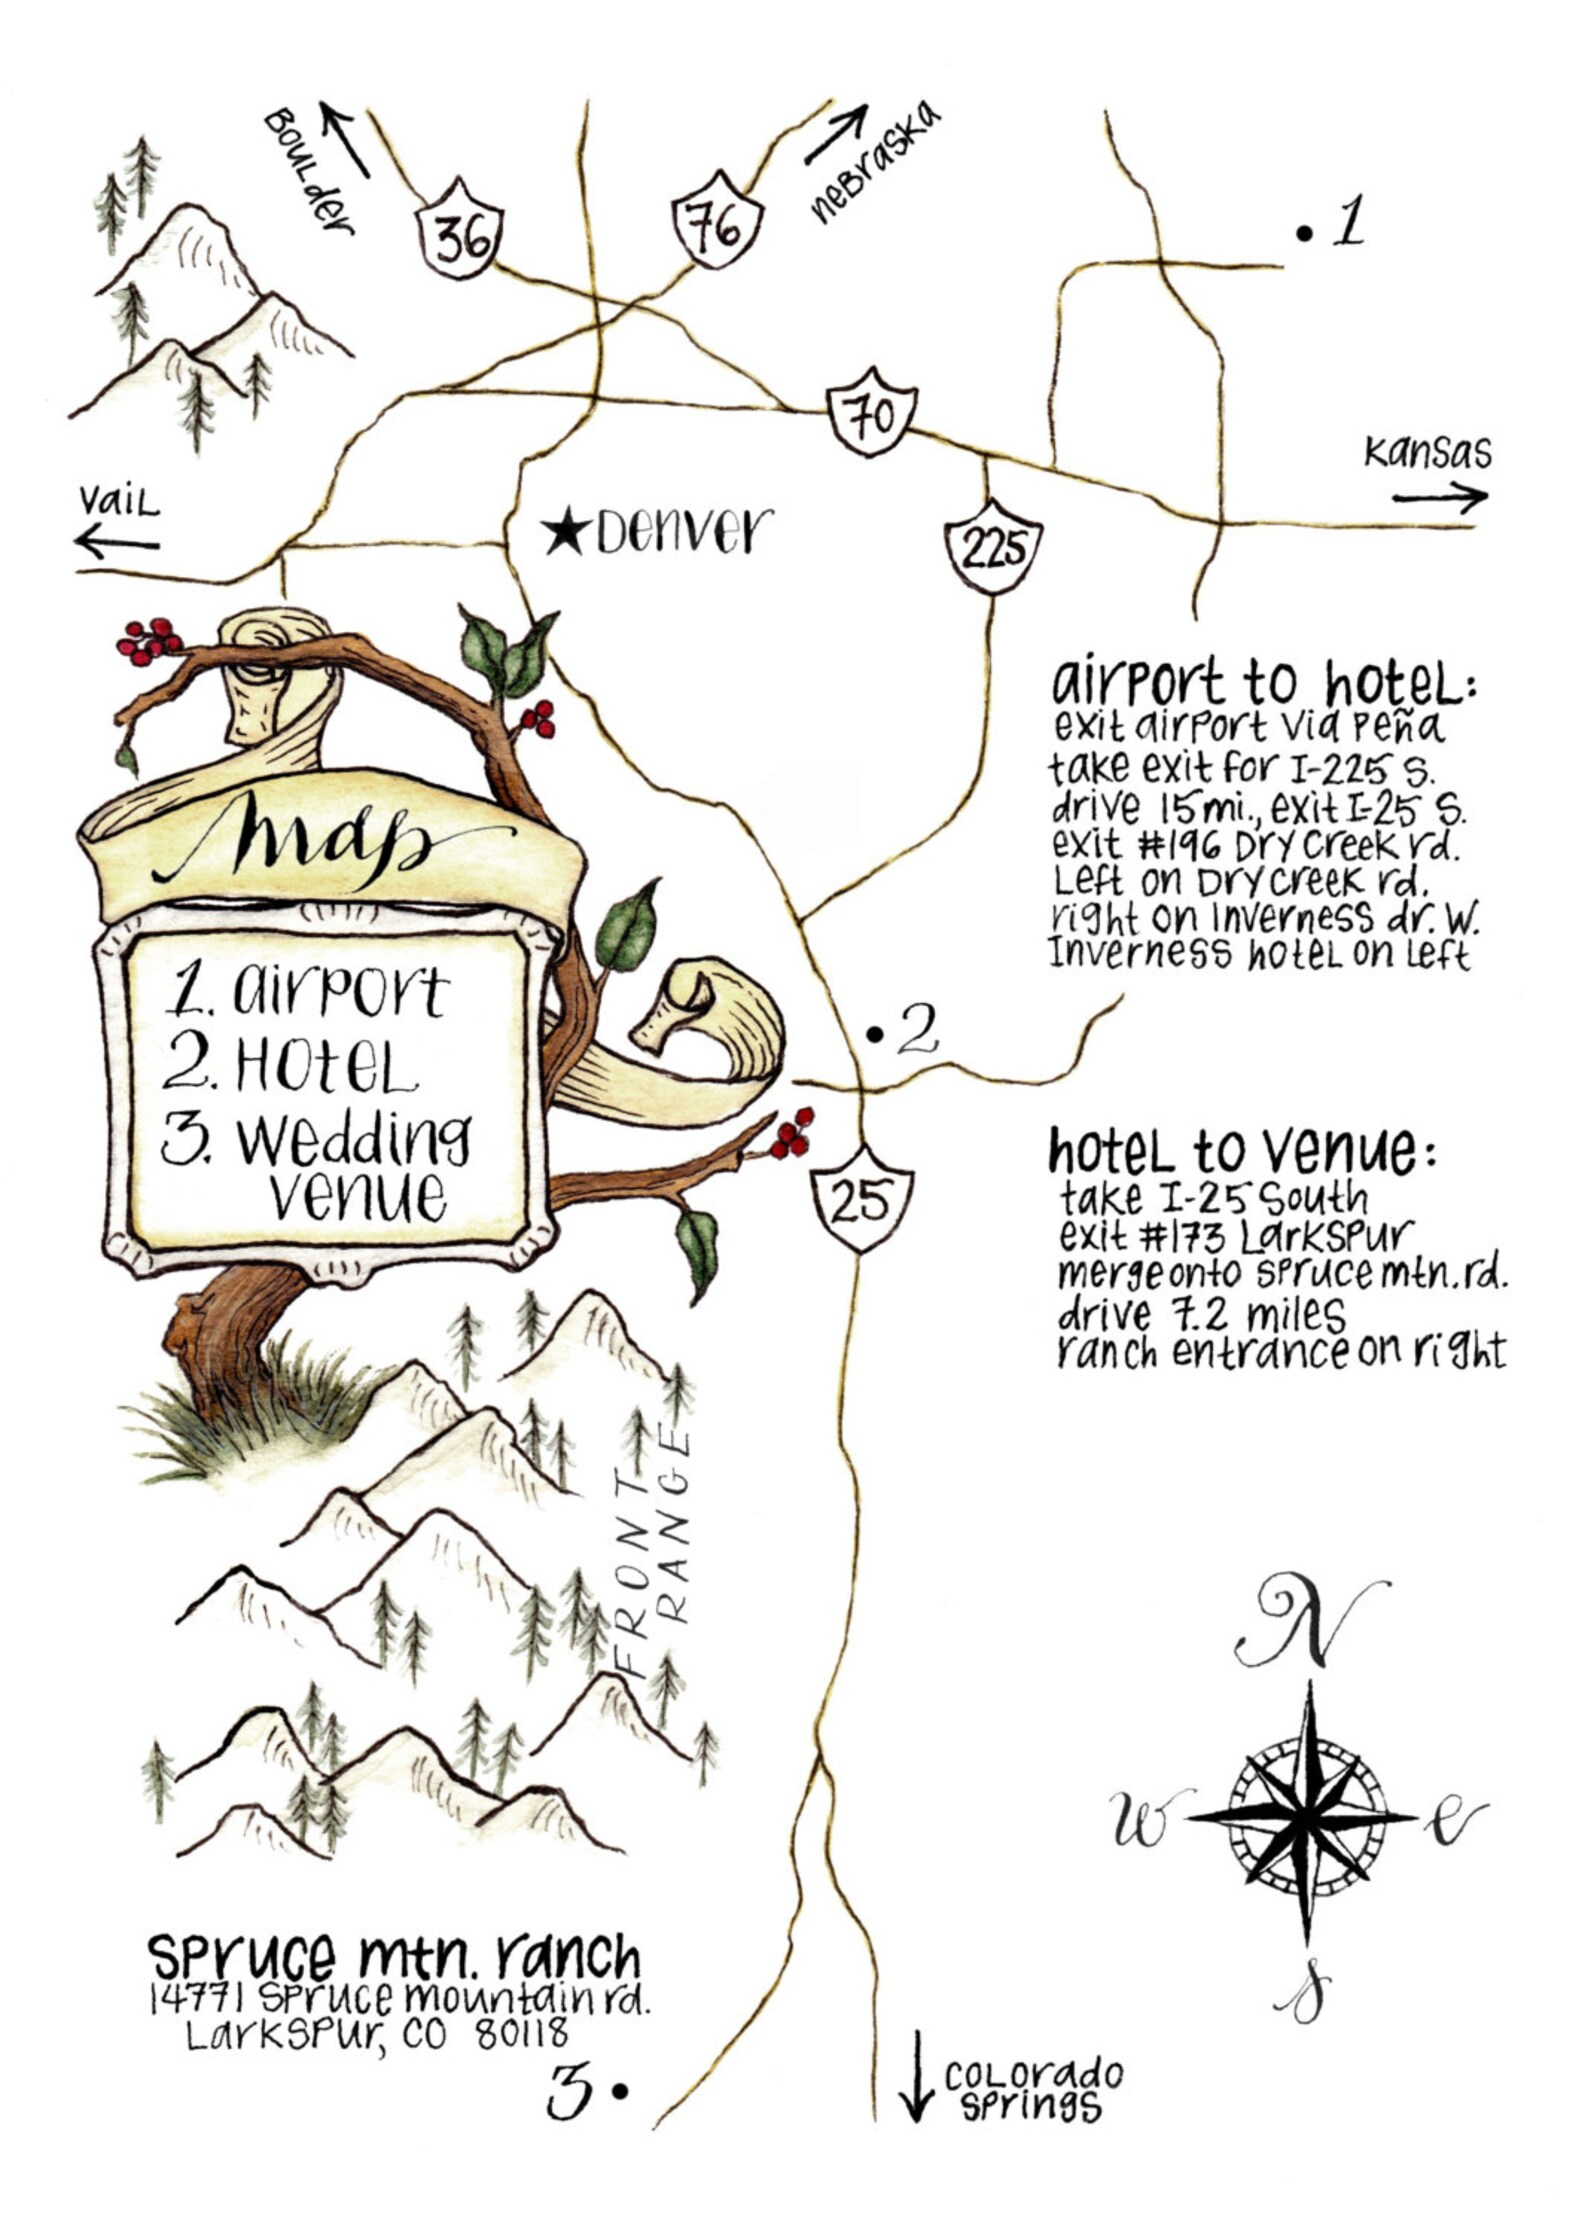 Boulder
36
76
nebraska
1
70
Kansas
Vail
Denver
225
map
1. airport
2. Hotel
3. wedding
venue
airport to hotel:
exit airport via Peña
take exit for I-225 S.
drive 15 mi., exit I-25 S.
exit #196 Dry Creek rd.
Left on Dry Creek rd.
right on Inverness dr. W.
Inverness hotel on Left
2
25
hotel to venue:
take I-25 South
exit #173 Larkspur
merge onto spruce mtn. rd.
drive 7.2 miles
ranch entrance on right
FRONT
RANGE
N
w
e
s
spruce mtn. ranch
14771 Spruce mountain rd.
Larkspur, CO 80118
3
Colorado
Springs